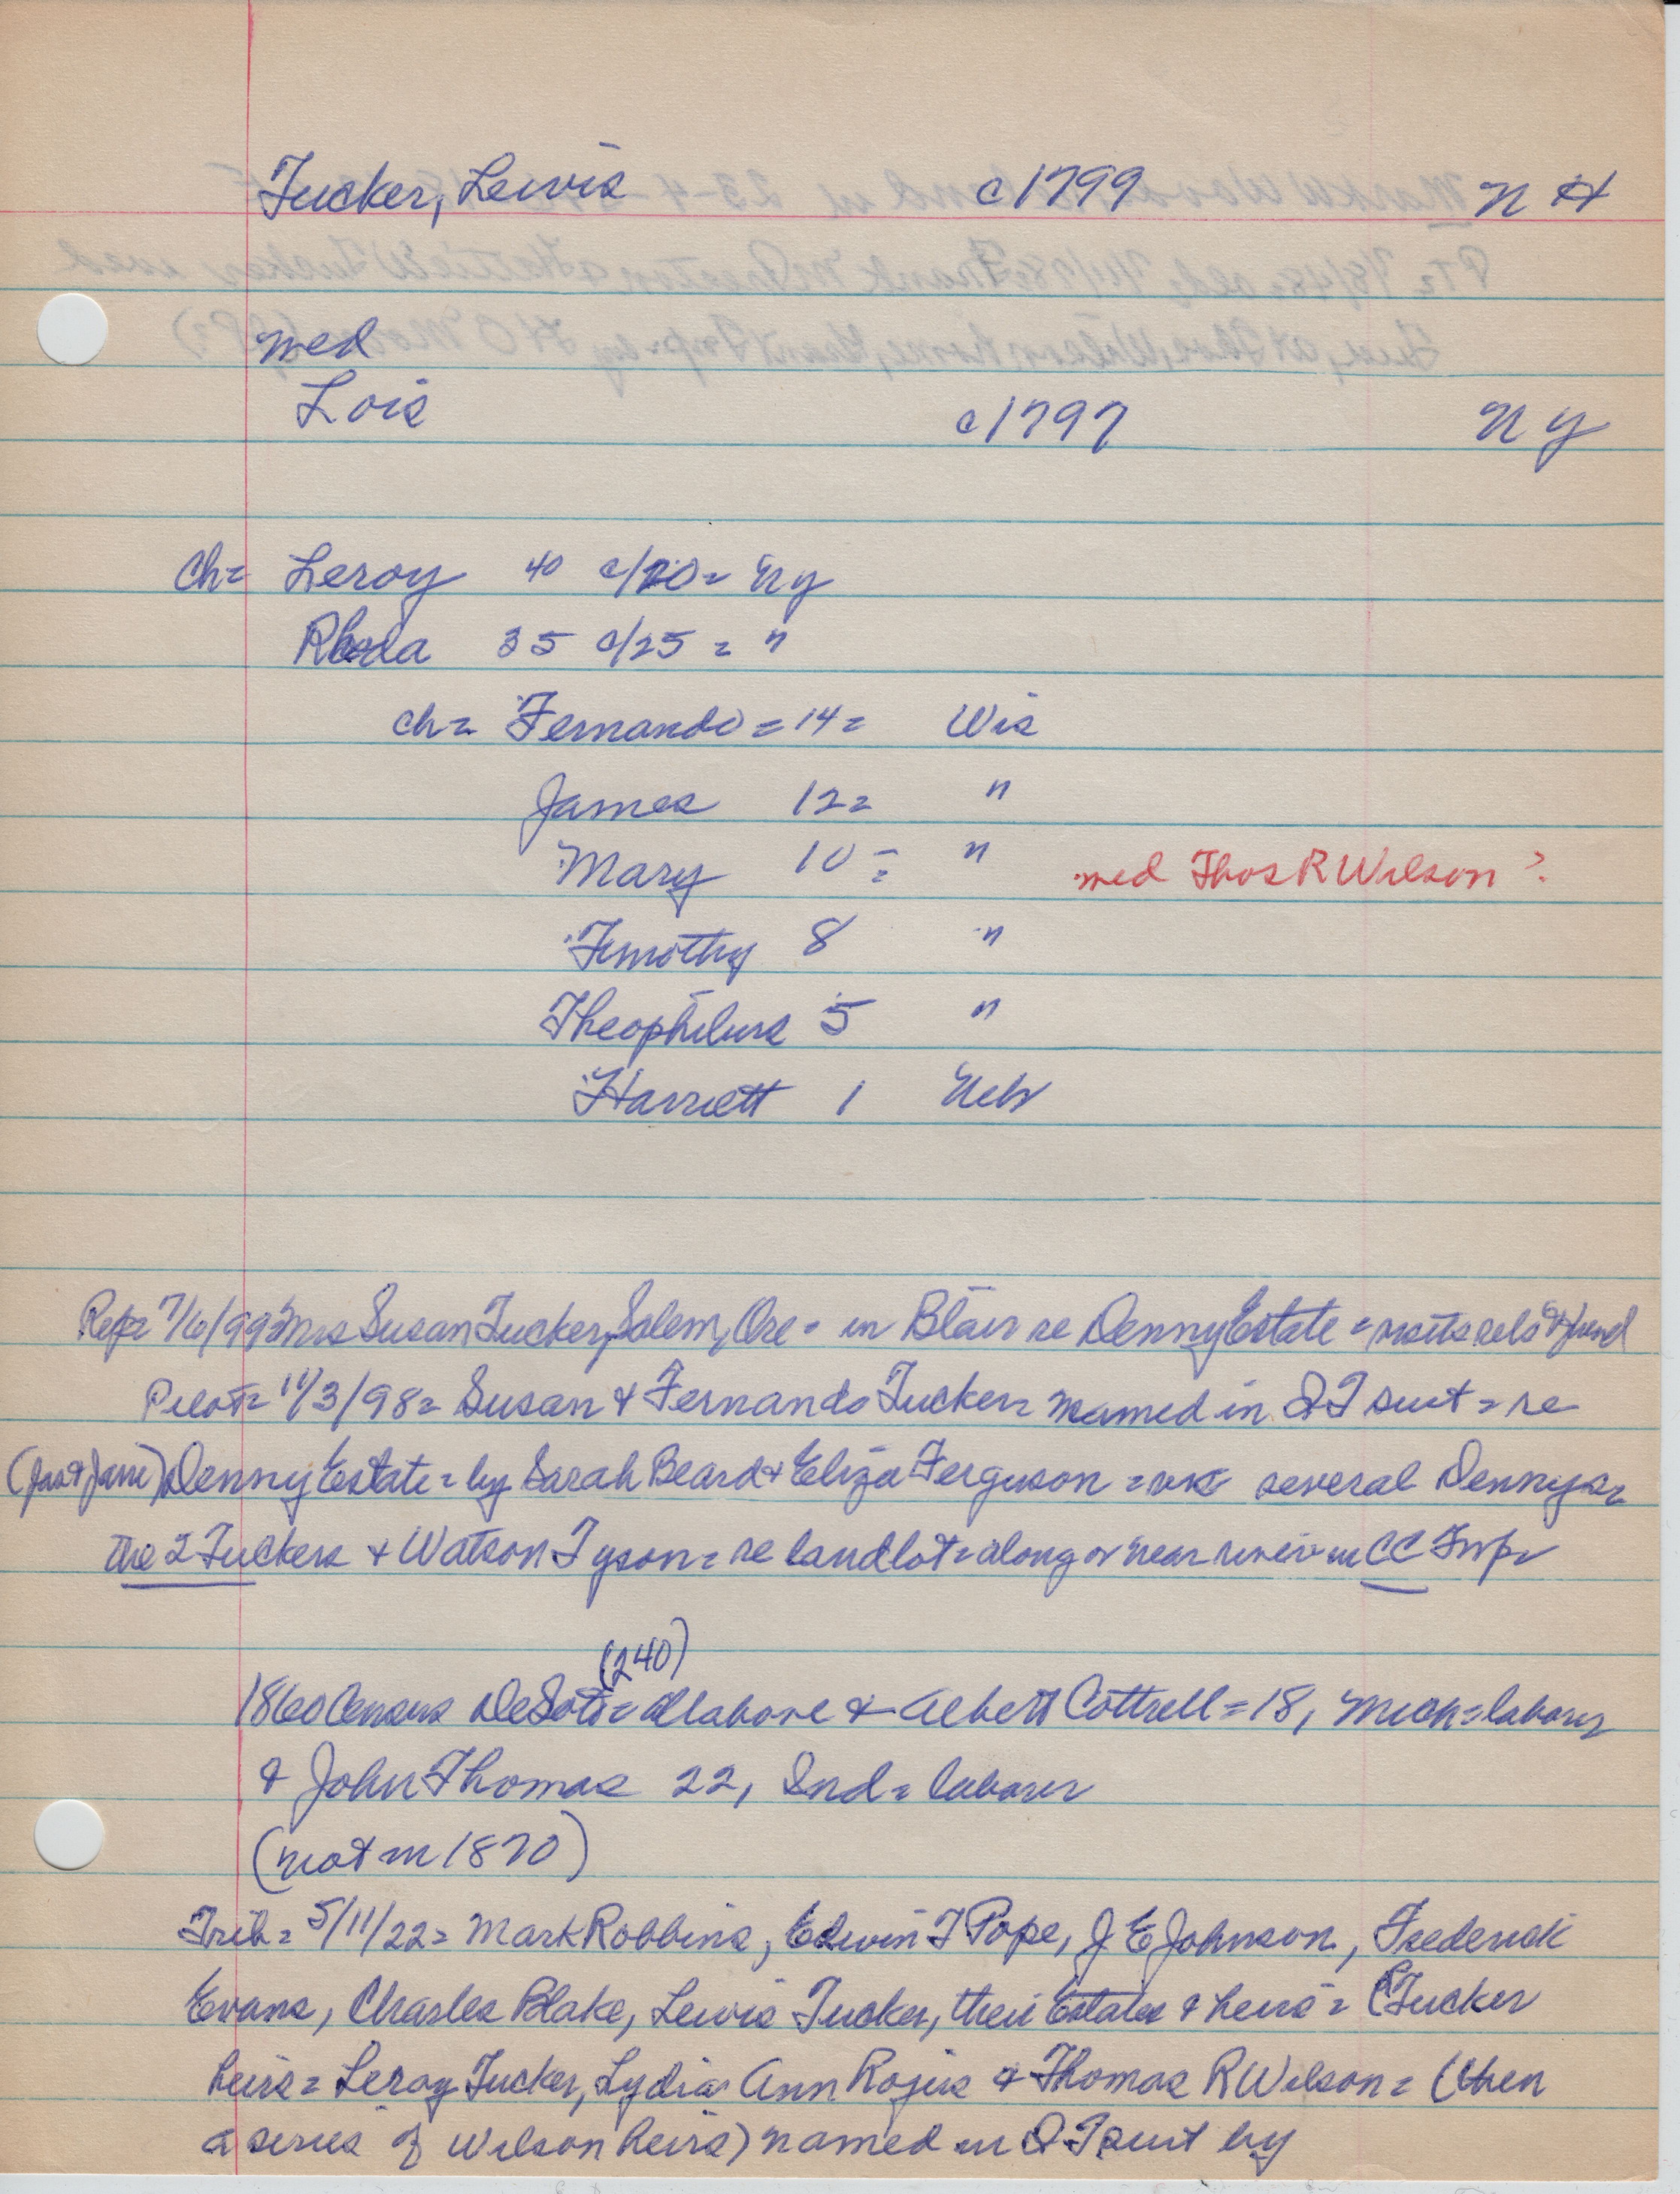 Tucker, Lewis c1799 NH
med
Lois c1797 NY
Ch= Leroy 40 c/20= NY
Rhoda 35 c/25 = "
ch= Fernando = 14= Wis
James 12= "
Mary 10 = " med Thos R Wilson ?
Timothy 8 "
Theophilus 5 "
Harriett 1 Neb
Rep= 7/6/99= Mrs Susan Tucker, Salem, Ore = in Blair re Denny Estate = visits rels &
Pilot= 11/3/98= Susan & Fernando Tucker= named in QT suit = re
(Jas & Jane) Denny Estate= by Sarah Beard & Eliza Ferguson = vs several Dennys=
the 2 Tuckers & Watson Tyson= re land lot= along or near river in CC Twp=
(240)
1860 Census DeSoto= all above & Albert Cottrell=18, Mich=laborer
& John Thomas 22, Ind= laborer
(not in 1870)
Trib= 5/11/22= Mark Robbins, Edwin T Pope, J E Johnson, Frederick
Evans, Charles Blake, Lewis Tucker, their Estates & heirs = (Tucker
heirs= Leroy Tucker, Lydia Ann Rogers & Thomas R Wilson= (then
a series of Wilson heirs) named in QT suit by